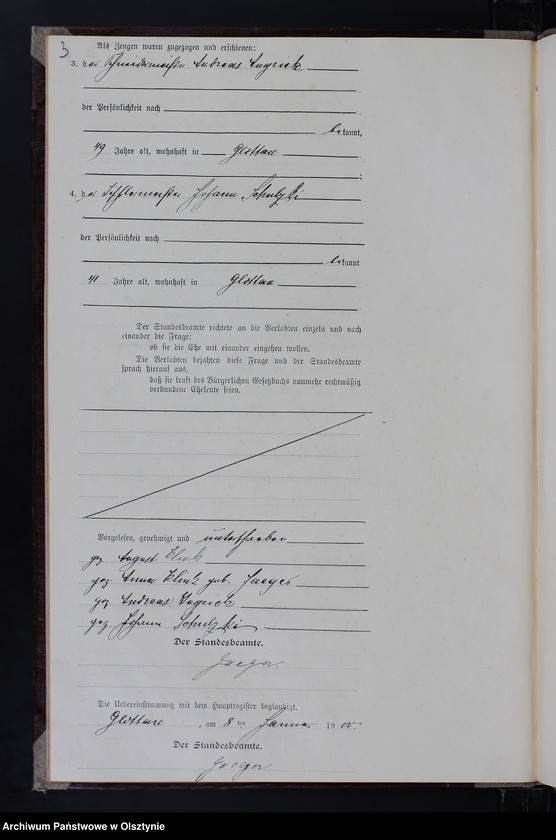 3
Als Zeugen waren zugezogen und erschienen:
3. der Schneidermeister Andreas Ungrich
der Persönlichkeit nach
bekannt,
49 Jahre alt, wohnhaft in Glottau
;
4. der Johann Schulzki
der Persönlichkeit nach
bekannt
41 Jahre alt, wohnhaft in Glottau
Der Standesbeamte richtete an die Verlobten einzeln und nach
einander die Frage:
ob sie die Ehe mit einander eingehen wollen.
Die Verlobten bejahten diese Frage und der Standesbeamte
sprach hierauf aus,
daß sie kraft des Bürgerlichen Gesetzbuchs nunmehr rechtmäßig
verbundene Eheleute seien.
Vorgelesen, genehmigt und unterschrieben
gez. August Klink
gez. Anna Klink geb. Jaeger
gez. Andreas Ungrich
gez. Johann Schulzki
Der Standesbeamte.
Jaeger.
Die Uebereinstimmung mit dem Hauptregister beglaubigt.
Glottau, am 8ten Januar 1900.
Der Standesbeamte.
Jaeger
Archiwum Państwowe w Olsztynie